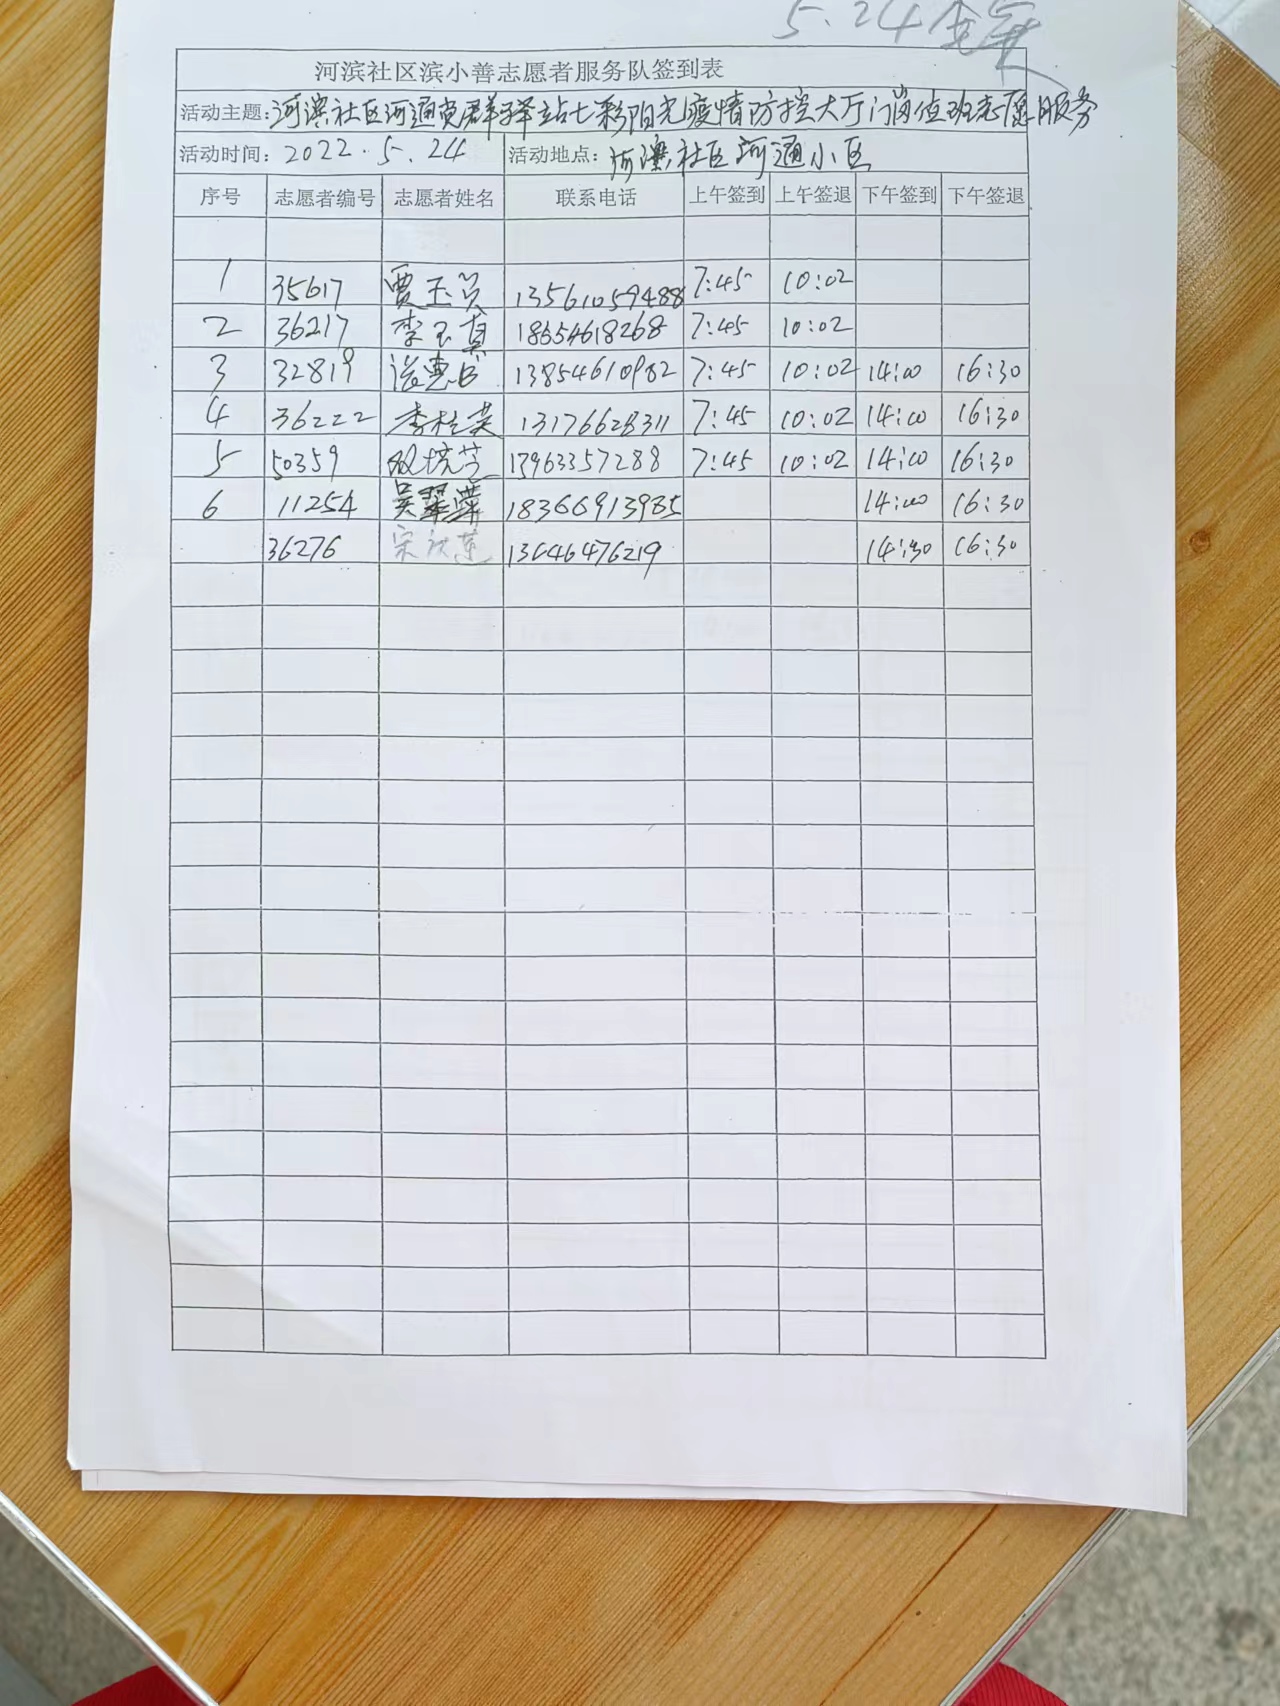 5.24
河滨社区滨小善志愿者服务队签到表
活动主题:河滨社区河通党群驿站七彩阳光疫情防控大厅门岗值班志愿服务
活动时间: 2022.5.24 活动地点: 河滨社区河通小区
序号 志愿者编号 志愿者姓名 联系电话 上午签到 上午签退 下午签到 下午签退
1 35617 贾玉 13561059488 7:45 10:02
2 36217 李玉真 18654618268 7:45 10:02
3 32819 13854610982 7:45 10:02 14:00 16:30
4 36222 李桂英 13176628311 7:45 10:02 14:00 16:30
5 50359 13963357288 7:45 10:02 14:00 16:30
6 11254 吴翠萍 18366913985 14:00 16:30
36276 宋 13646476219 14:30 16:30